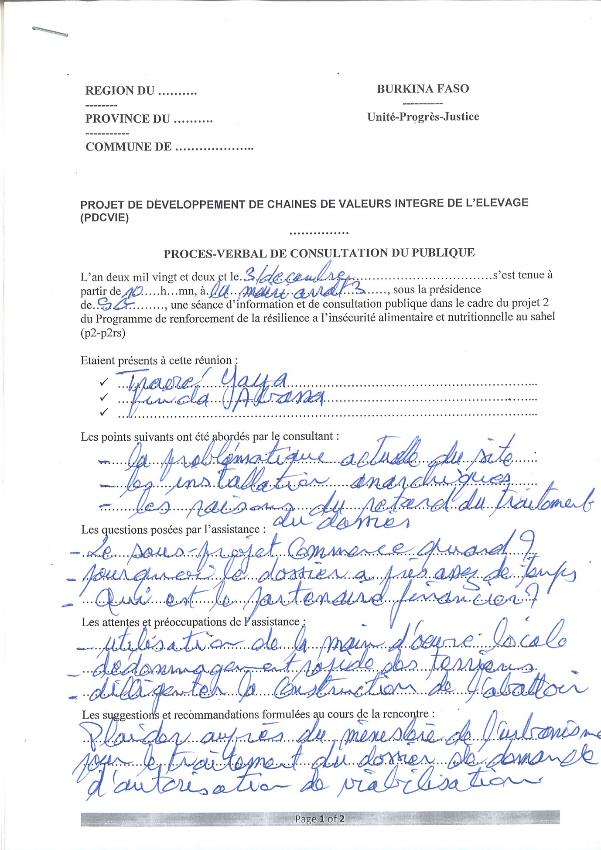 REGION DU ..........
BURKINA FASO
--------
----------
PROVINCE DU ..........
Unité-Progrès-Justice
-----------
COMMUNE DE ...................
PROJET DE DÉVELOPPEMENT DE CHAINES DE VALEURS INTEGRE DE L'ELEVAGE
(PDCVIE)
...............
PROCES-VERBAL DE CONSULTATION DU PUBLIQUE
L'an deux mil vingt et deux et le 3/decembre s'est tenue à
partir de 10 h mn, à la mairie arrdt 3, sous la présidence
de, une séance d'information et de consultation publique dans le cadre du projet 2
du Programme de renforcement de la résilience a l'insécurité alimentaire et nutritionnelle au sahel
(p2-p2rs)
Etaient présents à cette réunion :
✓ Traoré Yaya
✓
✓
Les points suivants ont été abordés par le consultant :
- la problématique actuelle du site
- les installation anarchiques
- les raisons du retard du traitement
du dossier
Les questions posées par l'assistance :
- Le sous-projet commence quand ?
- pourquoi le dossier a pris assez de temps
- Qui est le partenaire financier ?
Les attentes et préoccupations de l'assistance :
- utilisation de la main d'oeuvre locale
- dédommagement rapide des terriens
- dilligenter la construction de l'abattoir
Les suggestions et recommandations formulées au cours de la rencontre :
Plaider auprès du ministère de l'urbanisme
pour le traitement du dossier de demande
d'autorisation de viabilisation
Page 1 of 2